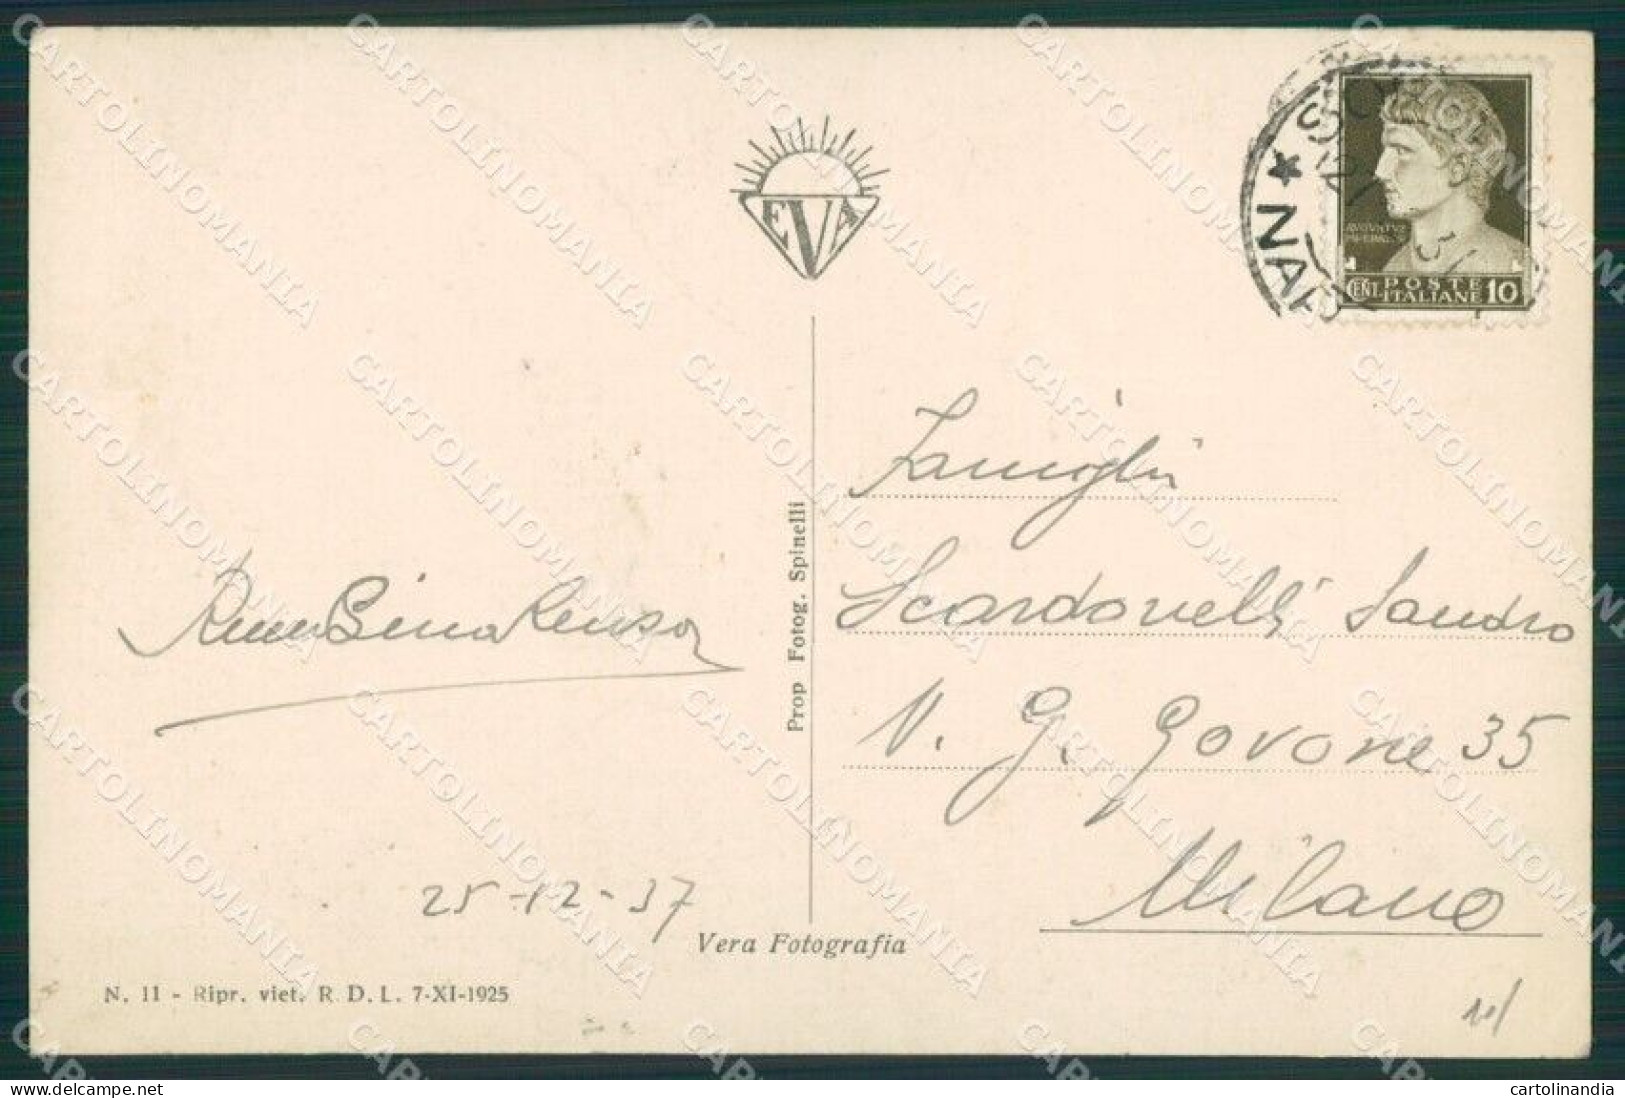 EVA
★ NAP
AVGVSTVS
CENT. POSTE ITALIANE 10
Famiglia
Scardovelli Sandro
V. G. Govone 35
Milano
Gino Renzo
25-12-37
Prop Fotog. Spinelli
Vera Fotografia
N. 11 - Ripr. viet. R. D. L. 7-XI-1925
CARTOLINOMANIA
delcampe.net
cartolinandia